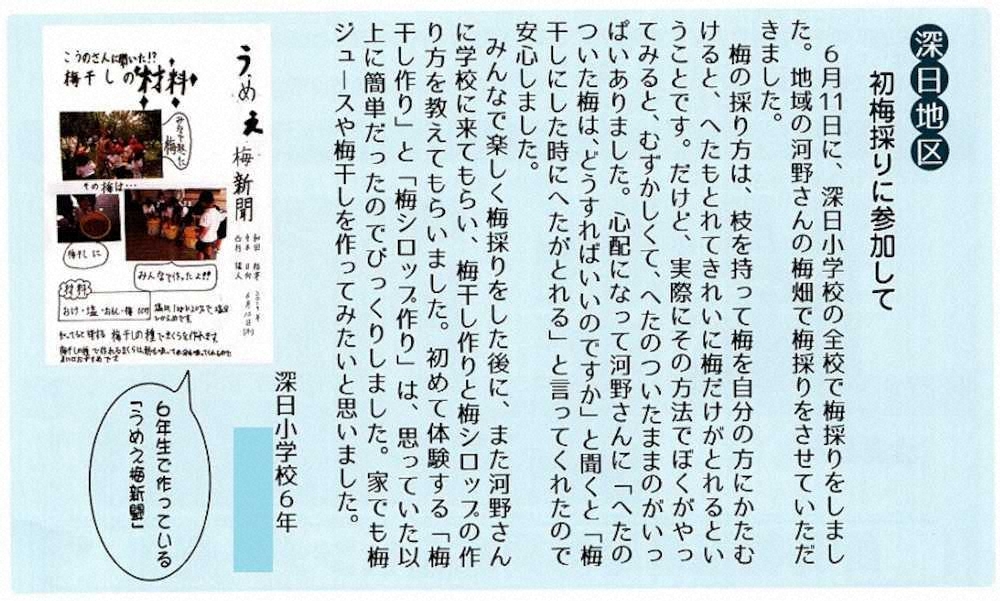 深日地区
初梅採りに参加して
６月11日に、深日小学校の全校で梅採りをしまし
た。地域の河野さんの梅畑で梅採りをさせていただ
きました。
梅の採り方は、枝を持って梅を自分の方にかたむ
けると、へたもとれてきれいに梅だけがとれるとい
うことです。だけど、実際にその方法でぼくがやっ
てみると、むずかしくて、へたのついたままのがいっ
ぱいありました。心配になって河野さんに「へたの
ついた梅は、どうすればいいのですか」と聞くと「梅
干しにした時にへたがとれる」と言ってくれたので
安心しました。
みんなで楽しく梅採りをした後に、また河野さん
に学校に来てもらい、梅干し作りと梅シロップの作
り方を教えてもらいました。初めて体験する「梅
干し作り」と「梅シロップ作り」は、思っていた以
上に簡単だったのでびっくりしました。家でも梅
ジュースや梅干しを作ってみたいと思いました。
深日小学校６年
うめえ梅新聞
こうのさんに聞いた!?
梅干しの材料
みんなで採った梅
その梅は…
梅干しに
みんなで作ったよ!!
材料
おけ・塩・おもし・梅
６年生で作っている
「うめえ梅新聞」